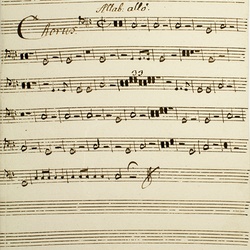 Allab. allo.
Chorus.
22